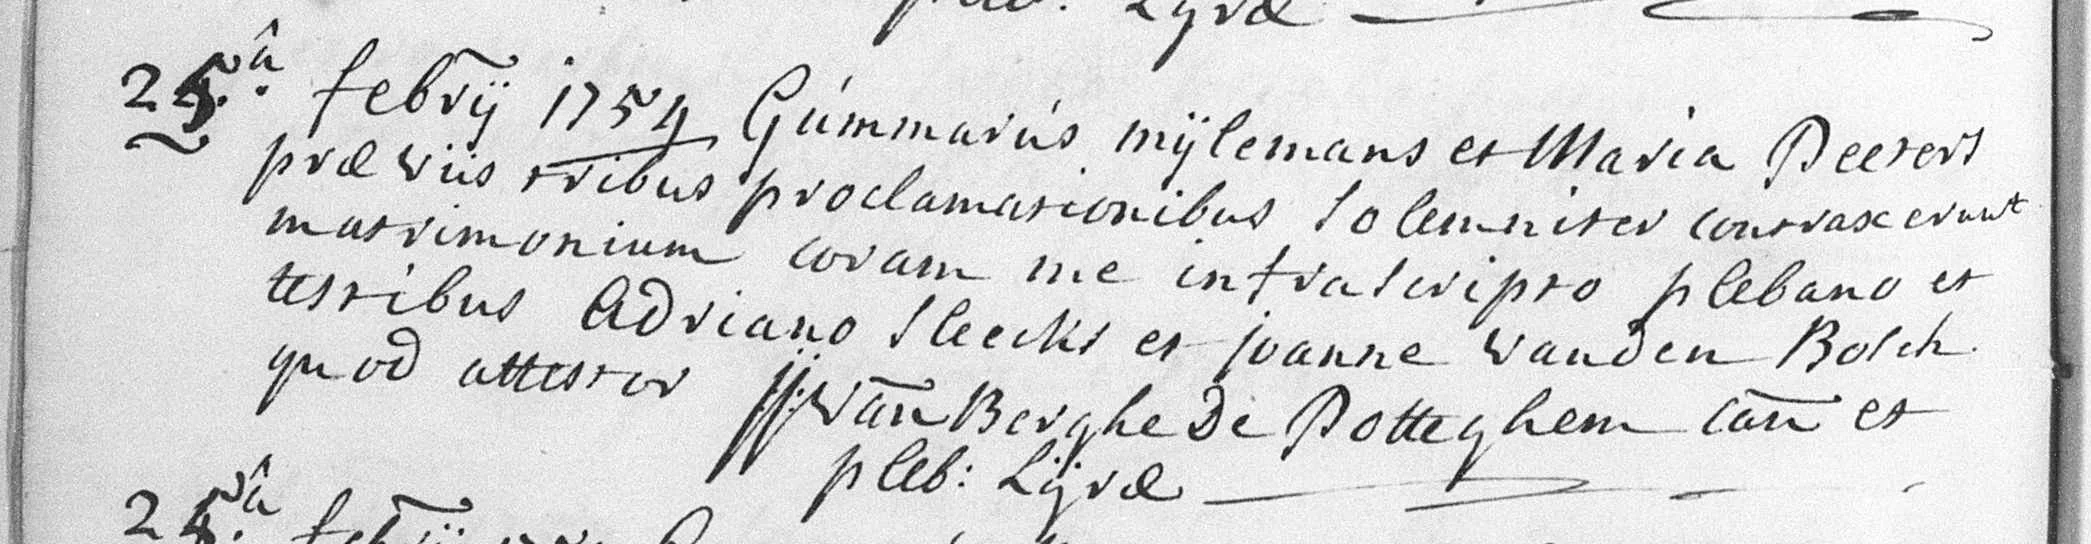 pleb: Lyræ
25.â febrij 1754 Gúmmarús mÿlemans et Maria Peeters
præviis tribus proclamationibus solemniter contraxerunt
matrimonium coram me infrascripto plebano et
testibus Adriano Sleeckx et joanne vanden Bosch
quod attestor JJ: van Berghe De Potteghem can et
pleb: Lÿræ
25.â febrij